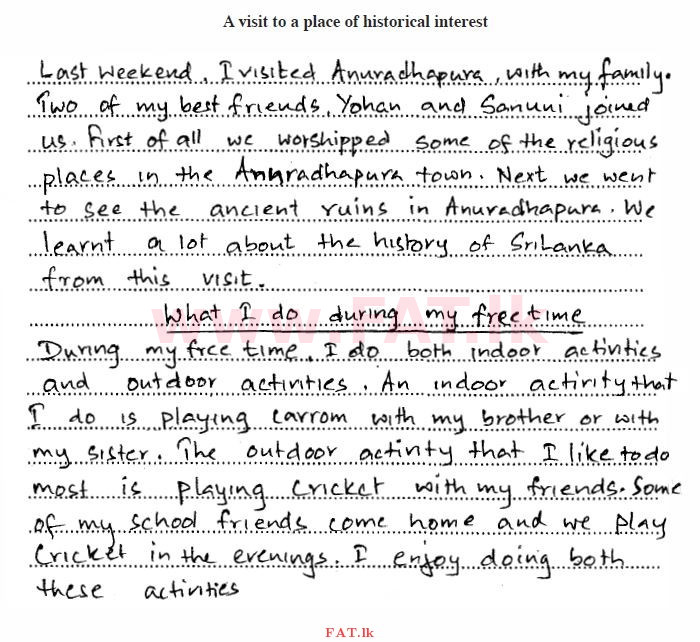 A visit to a place of historical interest
Last Weekend, I visited Anuradhapura, with my family.
Two of my best friends, Yohan and Sanuni joined
us. First of all we worshipped some of the religious
places in the Anuradhapura town. Next we went
to see the ancient ruins in Anuradhapura. We
learnt a lot about the history of SriLanka
from this visit.
What I do during my free time
www.FAT.lk
During my free time, I do both indoor activities
and outdoor activities. An indoor activity that
I do is playing carrom with my brother or with
my sister. The outdoor activity that I like to do
most is playing cricket with my friends. Some
of my school friends come home and we play
Cricket in the evenings. I enjoy doing both
these activities
FAT.lk